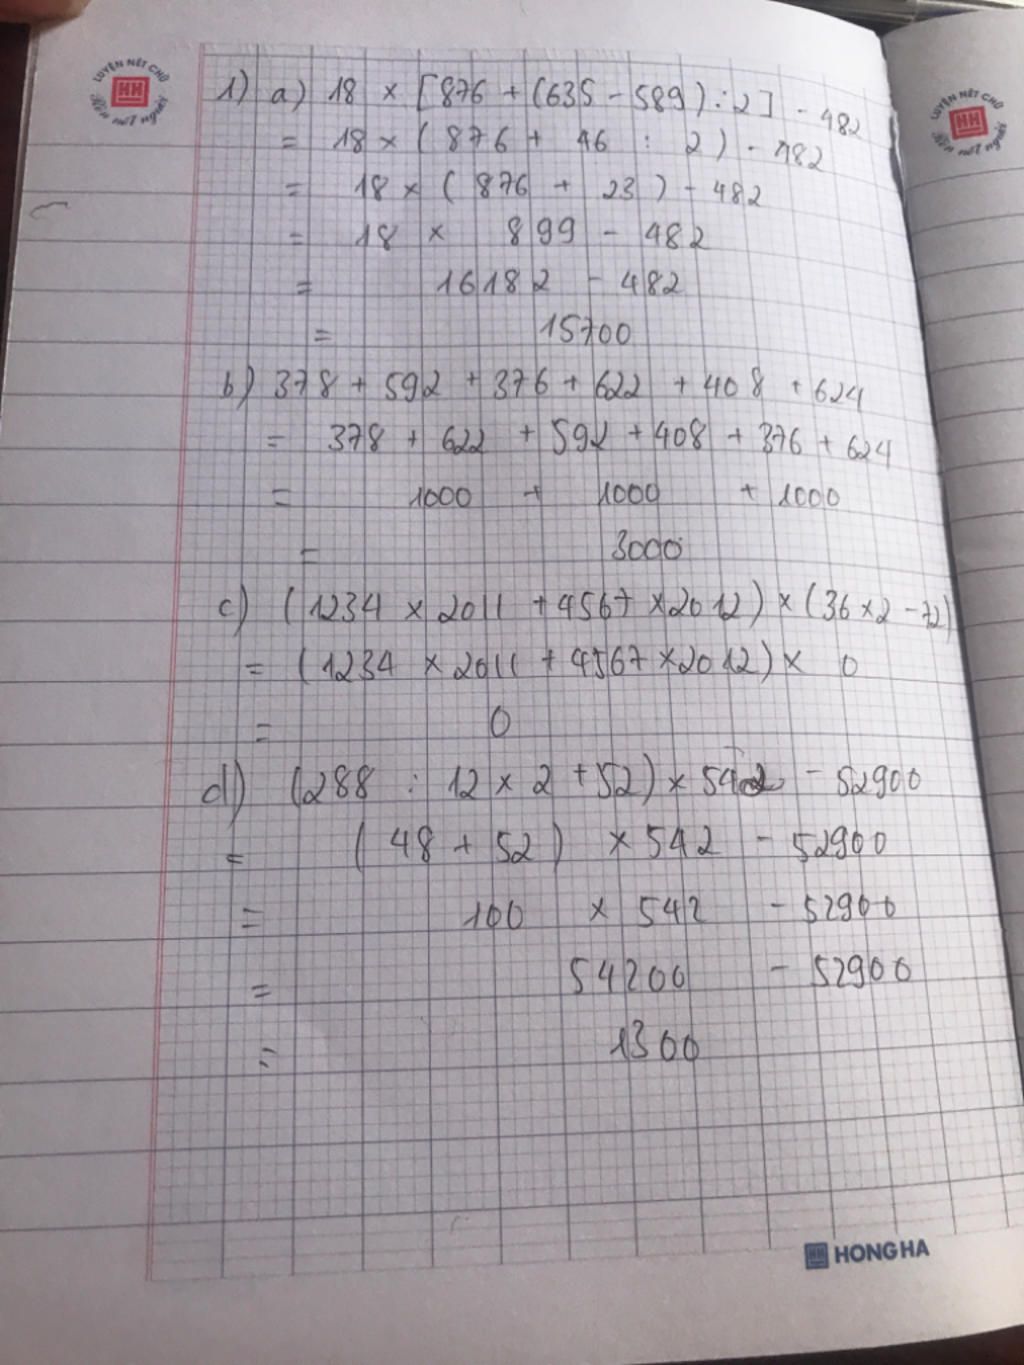 LUYỆN NÉT CHỮ
HH
Rèn nết người
LUYỆN NÉT CHỮ
HH
Rèn nết người
1) a) 18 × [876 + (635 - 589) : 2] - 482
= 18 × (876 + 46 : 2) - 482
= 18 × (876 + 23) - 482
= 18 × 899 - 482
= 16182 - 482
= 15700
b) 378 + 592 + 376 + 622 + 408 + 624
= 378 + 622 + 592 + 408 + 376 + 624
= 1000 + 1000 + 1000
= 3000
c) (1234 × 2011 + 4567 × 2012) × (36 × 2 - 72)
= (1234 × 2011 + 4567 × 2012) × 0
= 0
d) (288 : 12 × 2 + 52) × 542 - 52900
= (48 + 52) × 542 - 52900
= 100 × 542 - 52900
= 54200 - 52900
= 1300
HH HONG HA